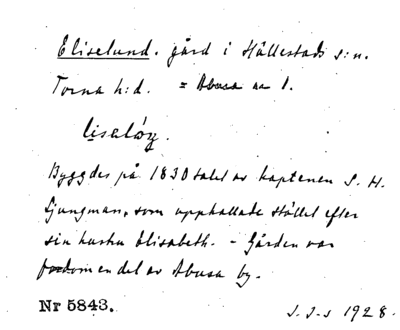 Eliselund. gård i Hällestads s:n.
Torna h:d. = Abusa no 1.
Byggdes på 1830 talet av kaptenen S. H.
Ljungman, som uppkallade stället efter
sin hustru Elisabeth. - Gården var
en del av Abusa by.
Nr 5843.
1928.